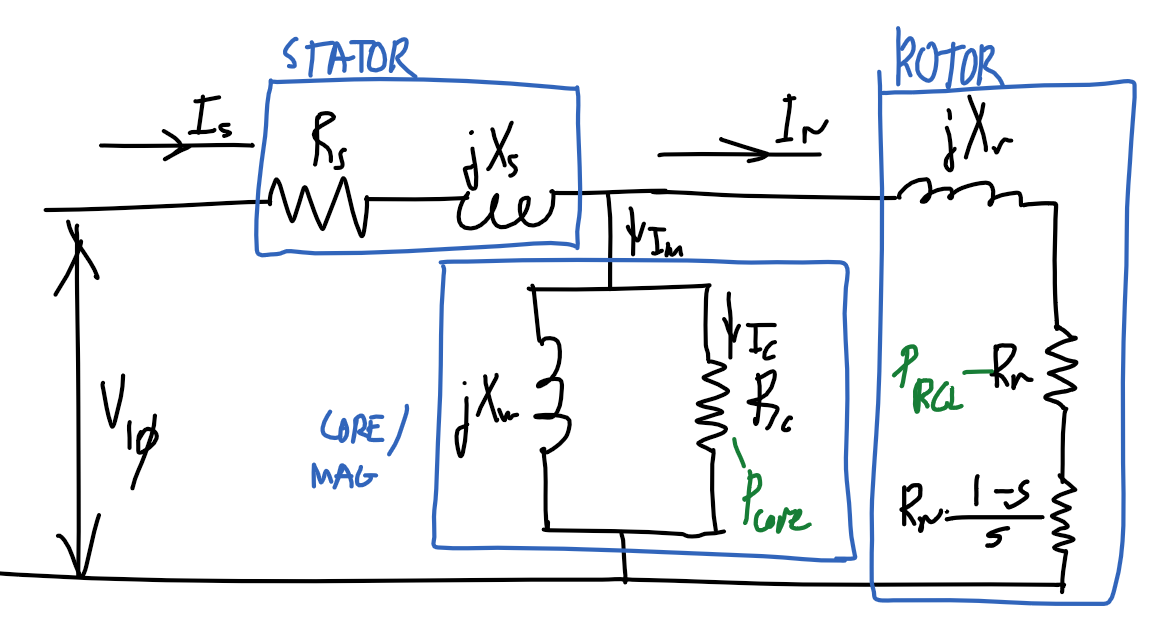 STATOR
ROTOR
Is
Rs
jXs
Ir
jXr
Im
Ic
jXm
Rc
CORE/
MAG
PCORE
V1φ
PRCL
Rr
Rr 1-s
s